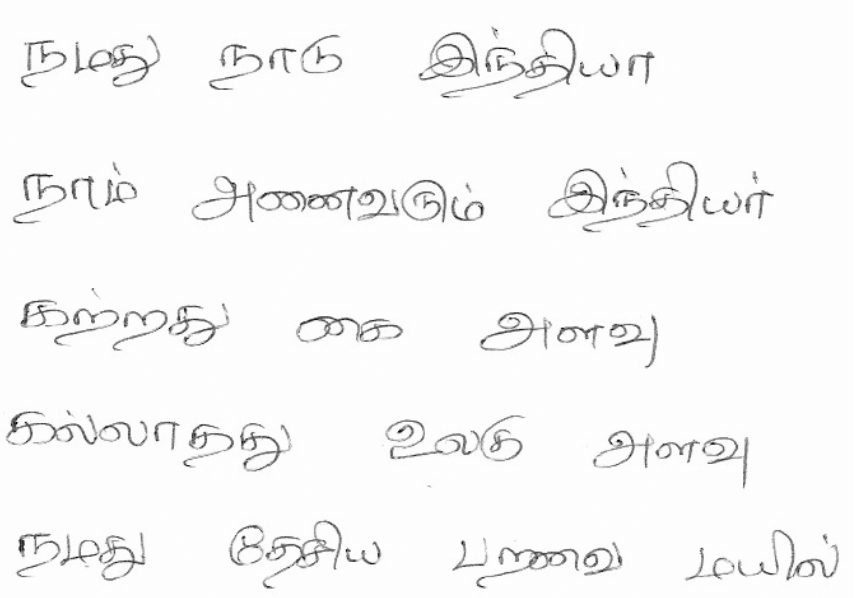 நமது நாடு இந்தியா
நாம் அணைவரும் இந்தியர்
கற்றது கை அளவு
கல்லாதது உலகு அளவு
நமது தேசிய பறவை மயில்